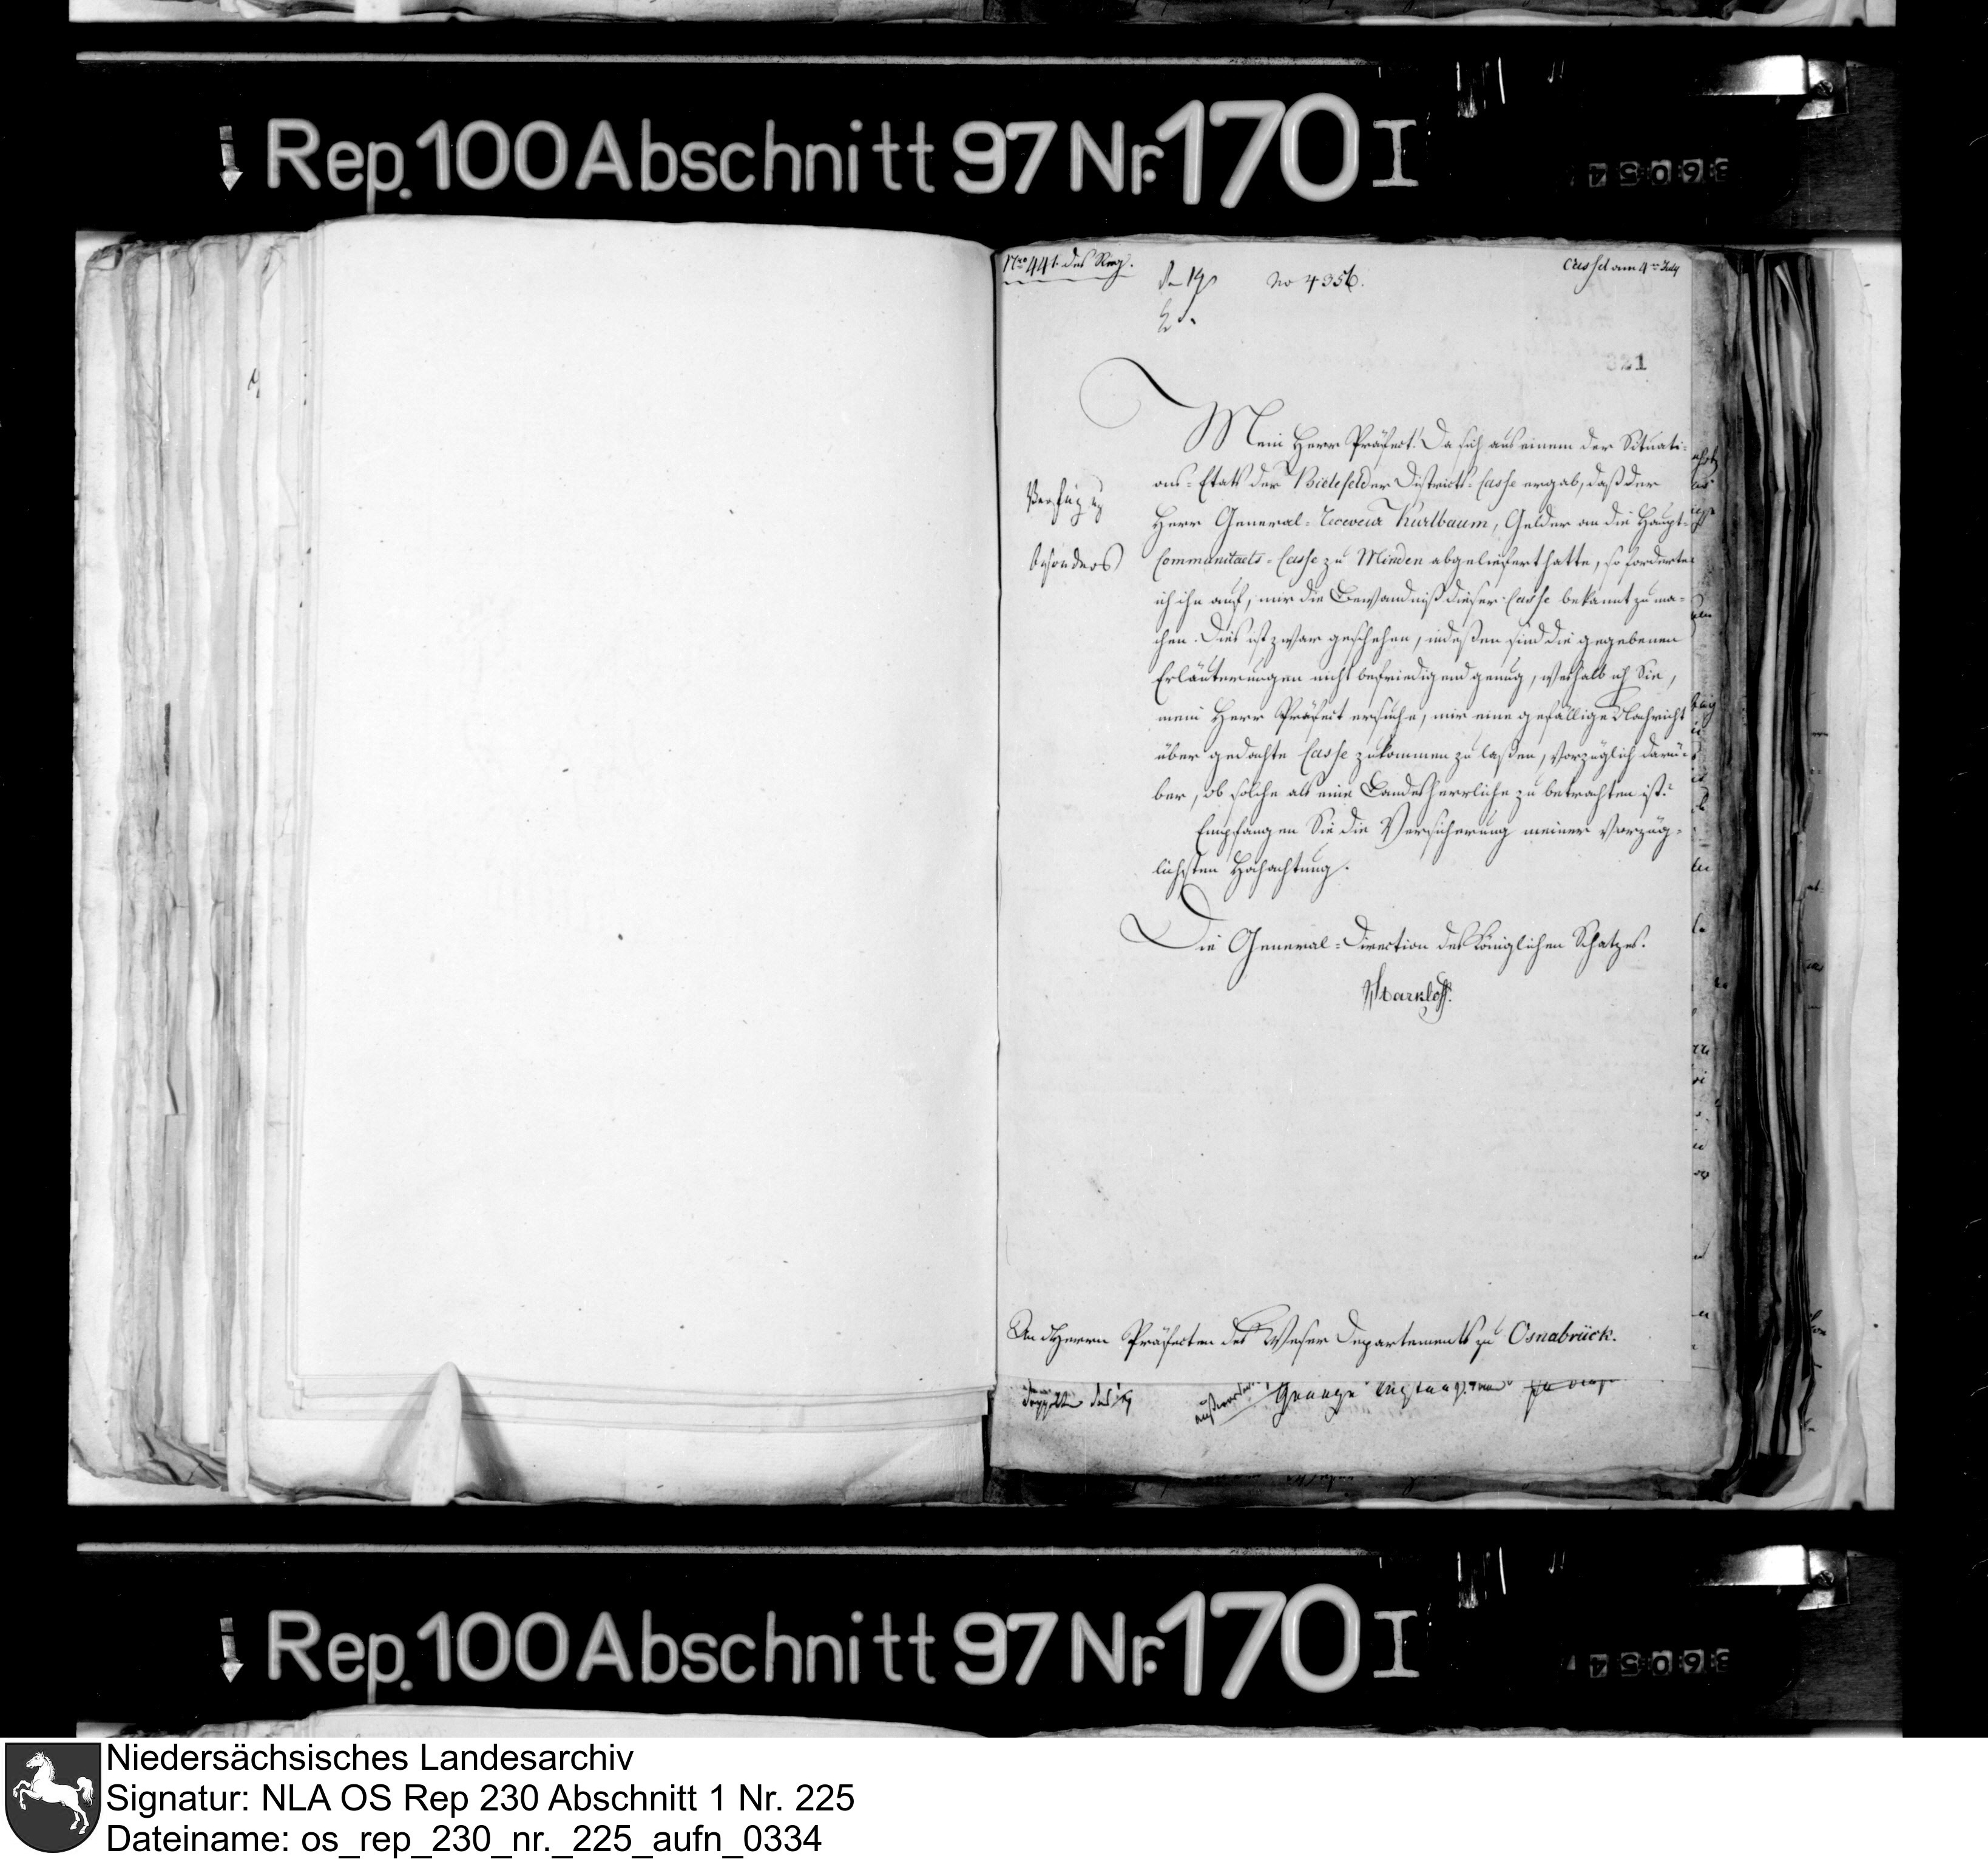 Rep. 100 Abschnitt 97 Nr. 170 I
Nro 441. des Reg.
No 4356.
Cassel am 4ten July
321
Mein Herr Präfect! Da sich aus einem der Situati-
ons-Etats der Bielefelder Districts-Casse ergab, daß der
Herr General-Receveur Kurlbaum, Gelder an die Haupt-
Communitaets-Casse zu Minden abgeliefert hatte, so forderte
ich ihn auf, mir die Bewandniß dieser Casse bekannt zu ma-
chen. Dies ist zwar geschehen, indeßen sind die gegebenen
Erläuterungen nicht befriedigend genug, weshalb ich Sie,
mein Herr Präfect ersuche, mir eine gefällige Nachricht
über gedachte Casse zukommen zu laßen, vorzüglich darü-
ber, ob solche als eine Landesherrliche zu betrachten ist?
Empfangen Sie die Versicherung meiner vorzüg-
lichsten Hochachtung.
Die General-Direction des Königlichen Schatzes.
besonders
An d Herrn Präfecten des Weser Departements zu Osnabrück.
Rep. 100 Abschnitt 97 Nr. 170 I
Niedersächsisches Landesarchiv
Signatur: NLA OS Rep 230 Abschnitt 1 Nr. 225
Dateiname: os_rep_230_nr._225_aufn_0334